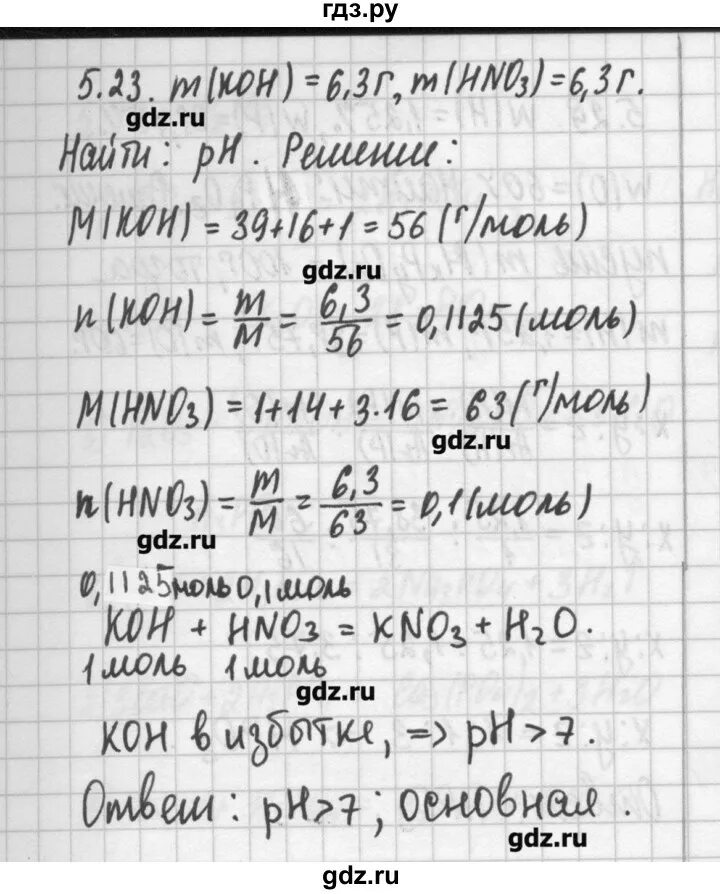 гдз.ру
5.23. m(KOH) = 6,3г, m(HNO₃) = 6,3г.
gdz.ru
Найти: pH. Решение:
M(KOH) = 39+16+1 = 56 (г/моль)
gdz.ru
n(KOH) = m/M = 6,3/56 = 0,1125 (моль)
M(HNO₃) = 1+14+3·16 = 63 (г/моль)
gdz.ru
n(HNO₃) = m/M = 6,3/63 = 0,1 (моль)
gdz.ru
0,1125моль 0,1моль
KOH + HNO₃ = KNO₃ + H₂O.
1моль 1моль
gdz.ru
KOH в избытке, => pH > 7.
Ответ: pH>7; основная.
gdz.ru
gdz.ru